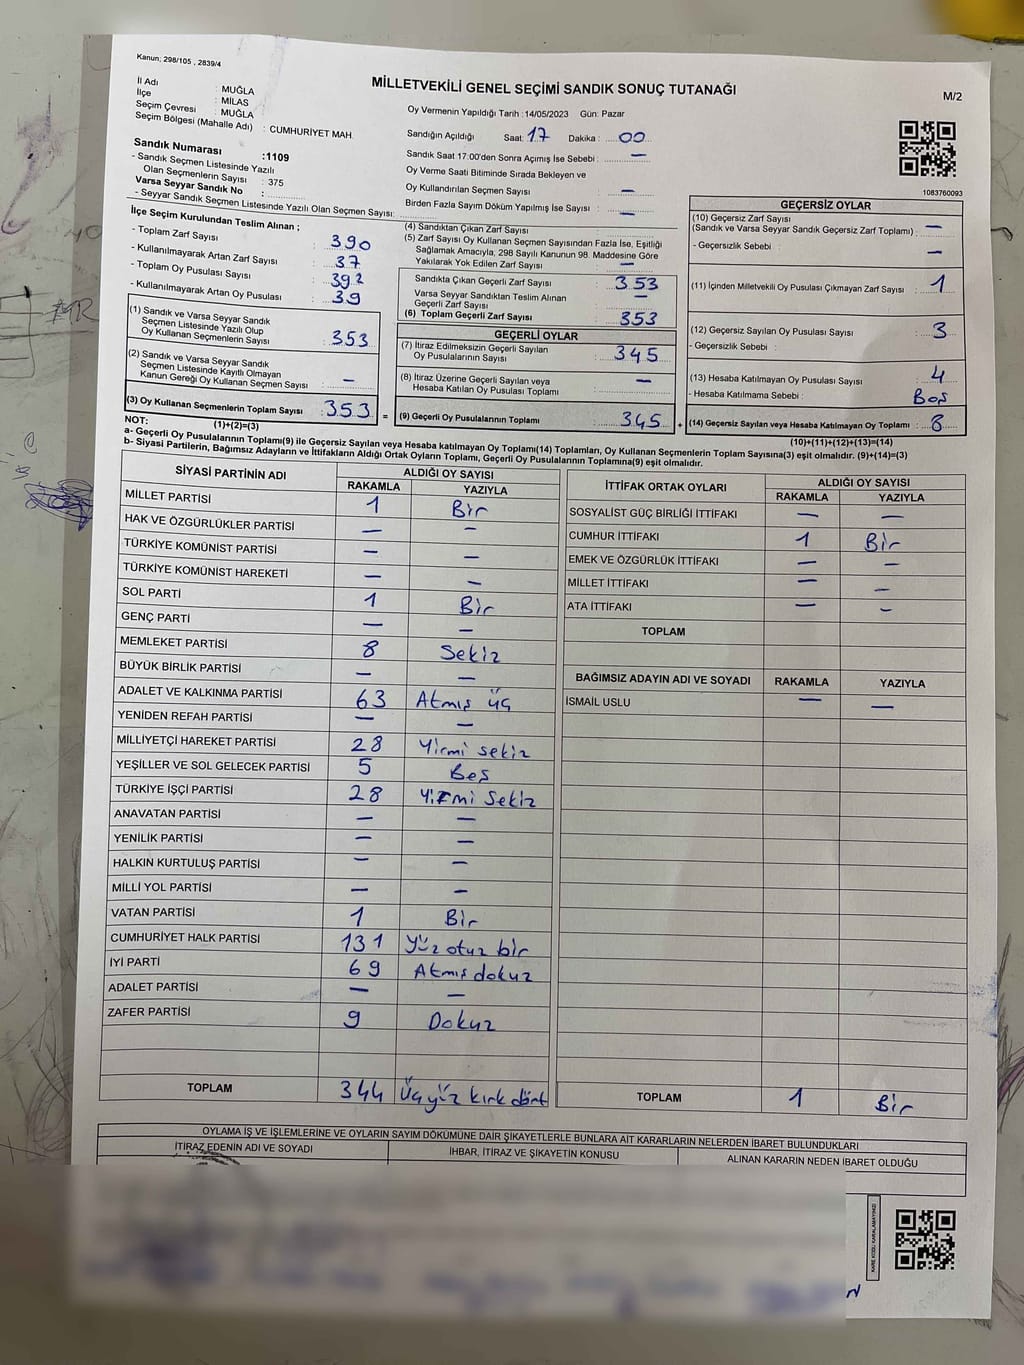 Kanun; 298/105 , 2839/4
MİLLETVEKİLİ GENEL SEÇİMİ SANDIK SONUÇ TUTANAĞI
M/2
İl Adı : MUĞLA
İlçe : MİLAS
Seçim Çevresi : MUĞLA
Seçim Bölgesi (Mahalle Adı) : CUMHURİYET MAH
Sandık Numarası :1109
- Sandık Seçmen Listesinde Yazılı
Olan Seçmenlerin Sayısı : 375
Varsa Seyyar Sandık No :
- Seyyar Sandık Seçmen Listesinde Yazılı Olan Seçmen Sayısı:
Oy Vermenin Yapıldığı Tarih :14/05/2023 Gün: Pazar
Sandığın Açıldığı Saat: 17 Dakika : 00
Sandık Saat 17:00'den Sonra Açımış İse Sebebi : —
Oy Verme Saati Bitiminde Sırada Bekleyen ve
Oy Kullandırılan Seçmen Sayısı : —
Birden Fazla Sayım Döküm Yapılmış İse Sayısı : —
1083760093
İlçe Seçim Kurulundan Teslim Alınan ;
- Toplam Zarf Sayısı : 390
- Kullanılmayarak Artan Zarf Sayısı : 37
- Toplam Oy Pusulası Sayısı : 392
- Kullanılmayarak Artan Oy Pusulası : 39
(1) Sandık ve Varsa Seyyar Sandık
Seçmen Listesinde Yazılı Olup
Oy Kullanan Seçmenlerin Sayısı : 353
(2) Sandık ve Varsa Seyyar Sandık
Seçmen Listesinde Kayıtlı Olmayan
Kanun Gereği Oy Kullanan Seçmen Sayısı : —
(3) Oy Kullanan Seçmenlerin Toplam Sayısı : 353 =
(1)+(2)=(3)
(4) Sandıktan Çıkan Zarf Sayısı :
(5) Zarf Sayısı Oy Kullanan Seçmen Sayısından Fazla İse, Eşitliği
Sağlamak Amacıyla, 298 Sayılı Kanunun 98. Maddesine Göre
Yakılarak Yok Edilen Zarf Sayısı : —
Sandıkta Çıkan Geçerli Zarf Sayısı : 353
Varsa Seyyar Sandıktan Teslim Alınan —
Geçerli Zarf Sayısı :
(6) Toplam Geçerli Zarf Sayısı : 353
GEÇERLİ OYLAR
(7) İtiraz Edilmeksizin Geçerli Sayılan
Oy Pusulalarının Sayısı : 345
(8) İtiraz Üzerine Geçerli Sayılan veya
Hesaba Katılan Oy Pusulası Toplamı : —
(9) Geçerli Oy Pusulalarının Toplamı : 345 +
GEÇERSİZ OYLAR
(10) Geçersiz Zarf Sayısı
(Sandık ve Varsa Seyyar Sandık Geçersiz Zarf Toplamı) : —
- Geçersizlik Sebebi : —
(11) İçinden Milletvekili Oy Pusulası Çıkmayan Zarf Sayısı : 1
(12) Geçersiz Sayılan Oy Pusulası Sayısı : 3
- Geçersizlik Sebebi :
(13) Hesaba Katılmayan Oy Pusulası Sayısı : 4
- Hesaba Katılmama Sebebi : Boş
(14) Geçersiz Sayılan veya Hesaba Katılmayan Oy Toplamı : 8
(10)+(11)+(12)+(13)=(14)
NOT:
a- Geçerli Oy Pusulalarının Toplamı(9) ile Geçersiz Sayılan veya Hesaba katılmayan Oy Toplamı(14) Toplamları, Oy Kullanan Seçmenlerin Toplam Sayısına(3) eşit olmalıdır. (9)+(14)=(3)
b- Siyasi Partilerin, Bağımsız Adayların ve İttifakların Aldığı Ortak Oyların Toplamı, Geçerli Oy Pusulalarının Toplamına(9) eşit olmalıdır.
SİYASİ PARTİNİN ADI ALDIĞI OY SAYISI
RAKAMLA YAZIYLA
MİLLET PARTİSİ 1 Bir
HAK VE ÖZGÜRLÜKLER PARTİSİ — —
TÜRKİYE KOMÜNİST PARTİSİ — —
TÜRKİYE KOMÜNİST HAREKETİ — —
SOL PARTİ 1 Bir
GENÇ PARTİ — —
MEMLEKET PARTİSİ 8 Sekiz
BÜYÜK BİRLİK PARTİSİ — —
ADALET VE KALKINMA PARTİSİ 63 Atmış üç
YENİDEN REFAH PARTİSİ — —
MİLLİYETÇİ HAREKET PARTİSİ 28 Yirmi sekiz
YEŞİLLER VE SOL GELECEK PARTİSİ 5 Beş
TÜRKİYE İŞÇİ PARTİSİ 28 Yirmi Sekiz
ANAVATAN PARTİSİ — —
YENİLİK PARTİSİ — —
HALKIN KURTULUŞ PARTİSİ — —
MİLLİ YOL PARTİSİ — —
VATAN PARTİSİ 1 Bir
CUMHURİYET HALK PARTİSİ 131 Yüz otuz bir
İYİ PARTİ 69 Atmış dokuz
ADALET PARTİSİ — —
ZAFER PARTİSİ 9 Dokuz
TOPLAM 344 Üçyüz kırk dört
İTTİFAK ORTAK OYLARI ALDIĞI OY SAYISI
RAKAMLA YAZIYLA
SOSYALİST GÜÇ BİRLİĞİ İTTİFAKI — —
CUMHUR İTTİFAKI 1 Bir
EMEK VE ÖZGÜRLÜK İTTİFAKI — —
MİLLET İTTİFAKI — —
ATA İTTİFAKI — —
TOPLAM
BAĞIMSIZ ADAYIN ADI VE SOYADI RAKAMLA YAZIYLA
İSMAİL USLU — —
TOPLAM 1 Bir
OYLAMA İŞ VE İŞLEMLERİNE VE OYLARIN SAYIM DÖKÜMÜNE DAİR ŞİKAYETLERLE BUNLARA AİT KARARLARIN NELERDEN İBARET BULUNDUKLARI
İTİRAZ EDENİN ADI VE SOYADI İHBAR, İTİRAZ VE ŞİKAYETİN KONUSU ALINAN KARARIN NEDEN İBARET OLDUĞU
KARE KODU KARALAMAYINIZ!